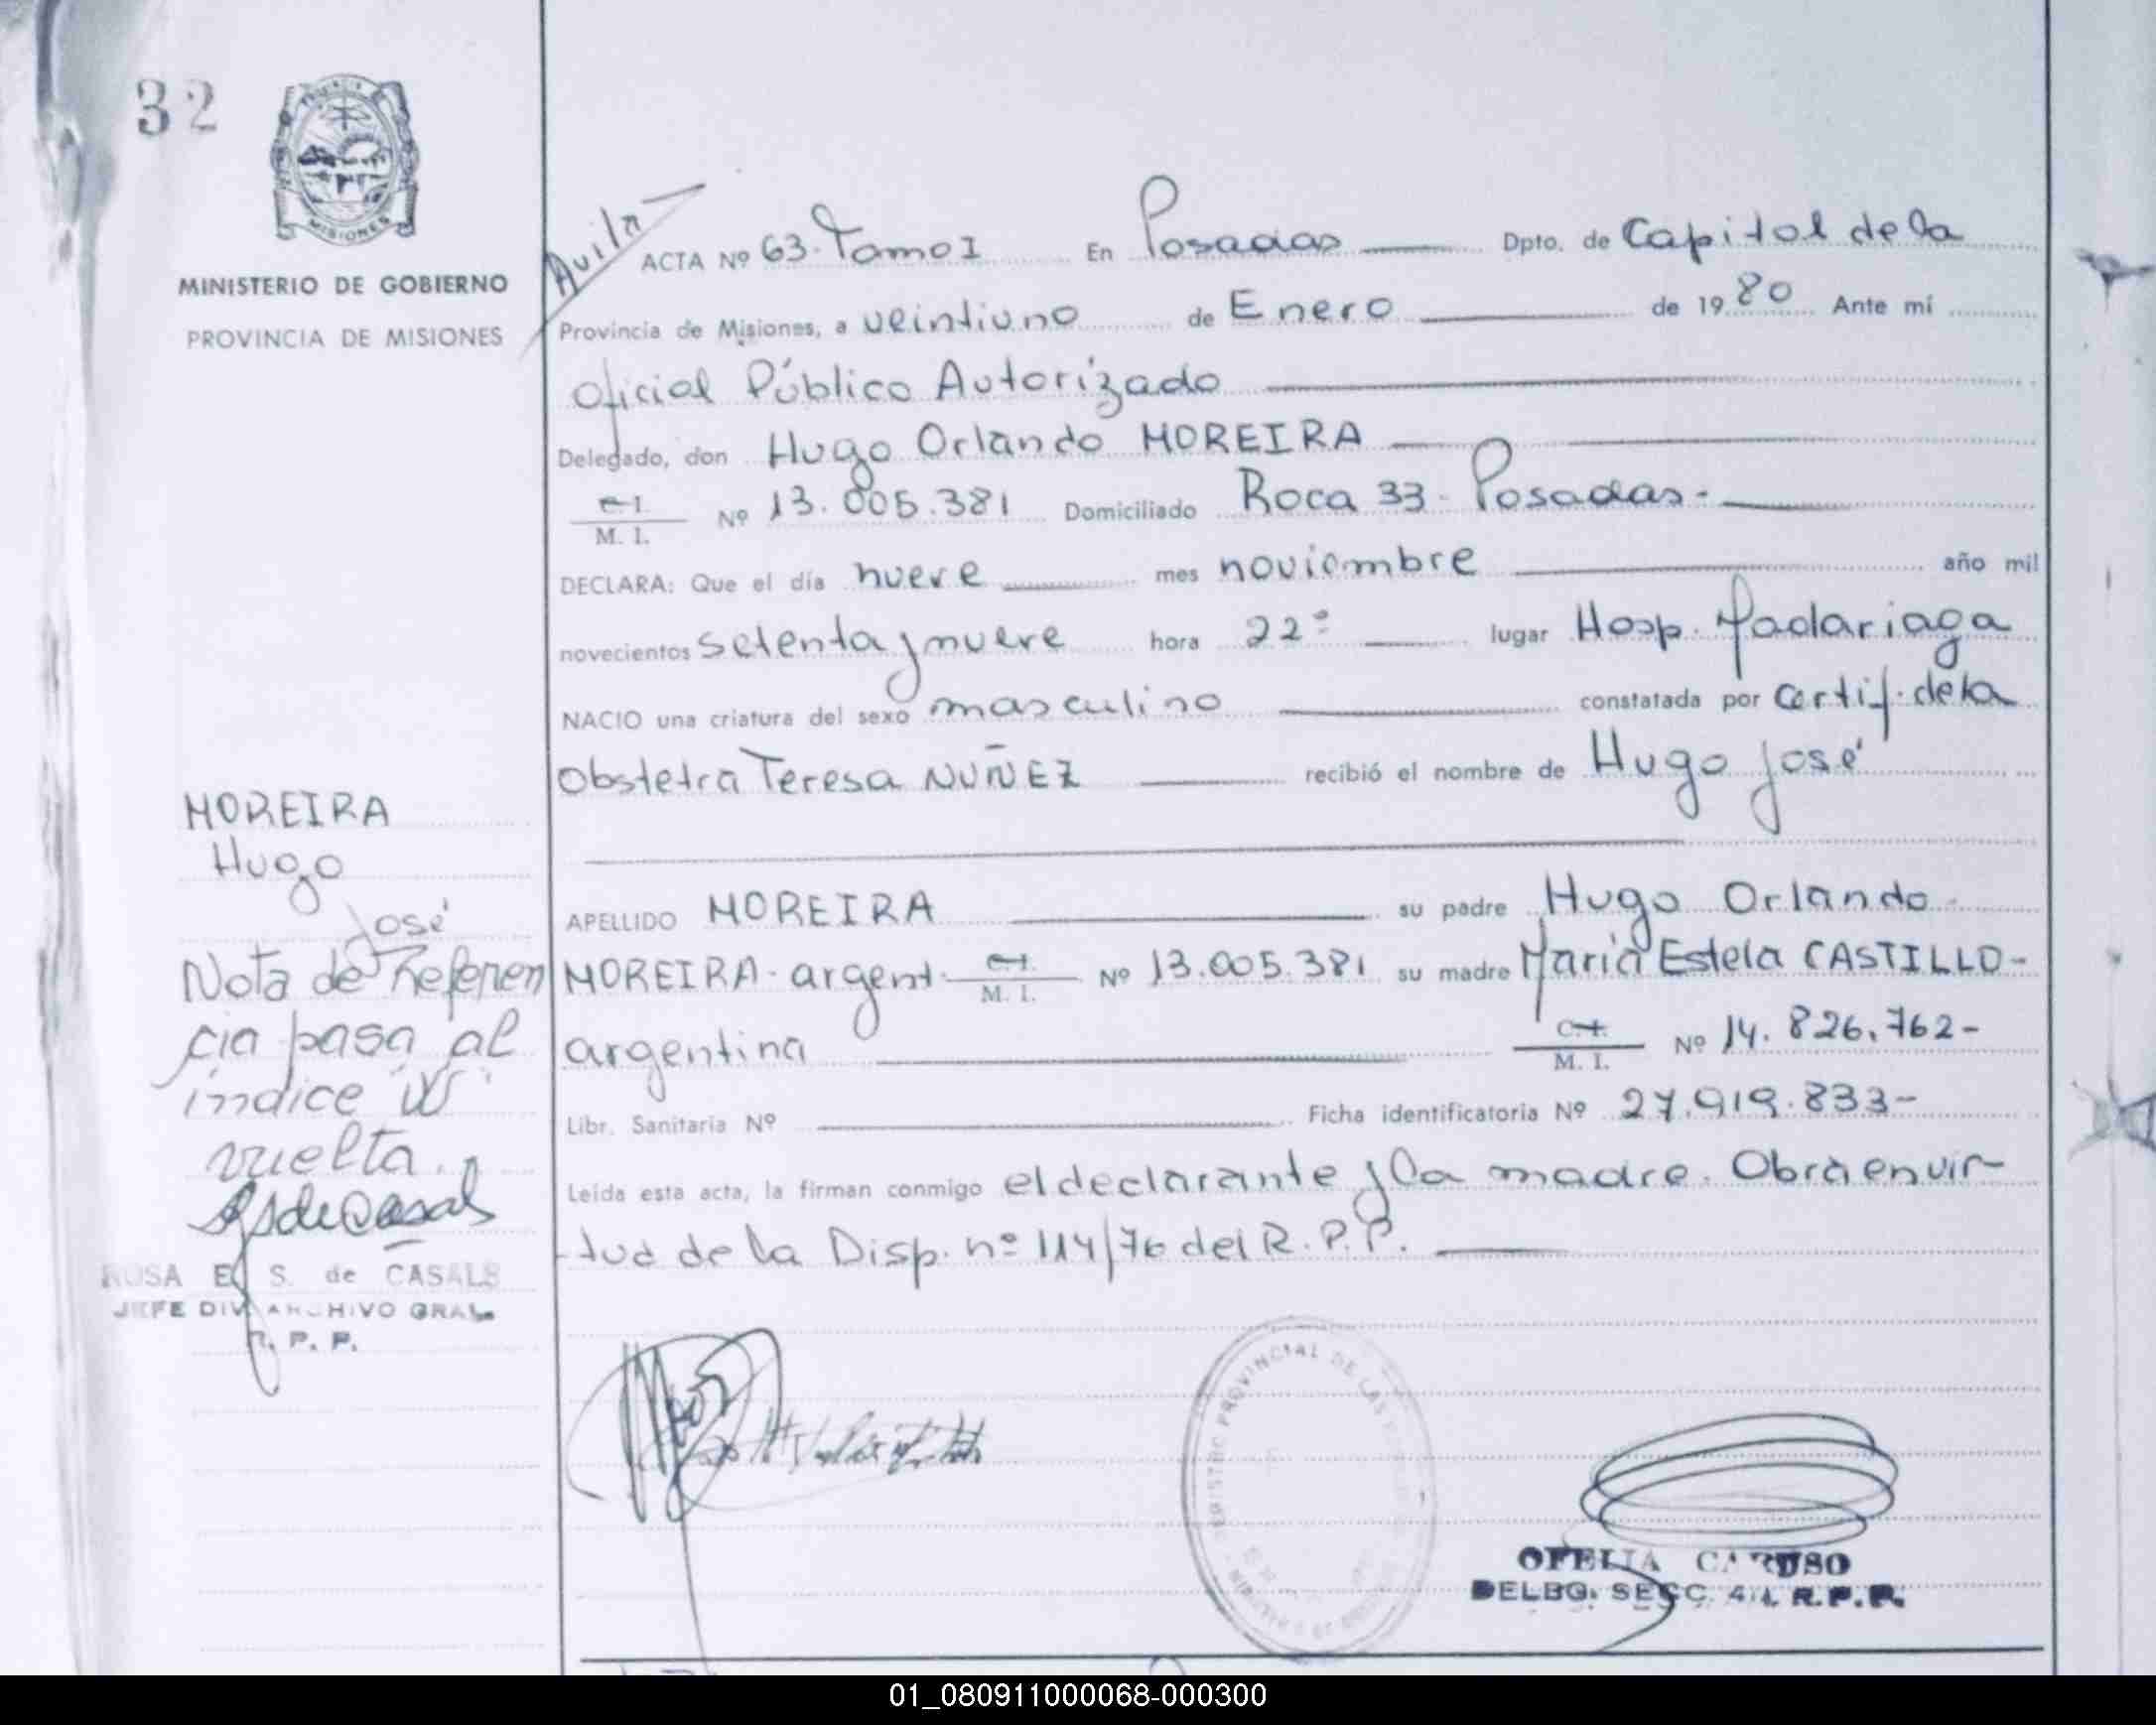 32
MISIONES
MINISTERIO DE GOBIERNO
PROVINCIA DE MISIONES
MOREIRA
Hugo
José
Nota de Referen
cia pasa al
índice
vuelta.
ROSA E. S. de CASALS
JEFE DIV. ARCHIVO GRAL.
R. P. P.
Avila
ACTA Nº 63. Tomo I En Posadas Dpto. de Capital de la
Provincia de Misiones, a veintiuno de Enero de 1980 Ante mí
Oficial Público Autorizado
Delegado, don Hugo Orlando MOREIRA
C.I.
M. I. Nº 13.005.381 Domiciliado Roca 33 - Posadas.-
DECLARA: Que el día nueve mes noviembre año mil
novecientos setenta y nueve hora 22º lugar Hosp. Madariaga
NACIO una criatura del sexo masculino constatada por certif. de la
Obstetra Teresa NUÑEZ recibió el nombre de Hugo José
APELLIDO MOREIRA su padre Hugo Orlando
MOREIRA - argent. C.I. M. I. Nº 13.005.381 su madre María Estela CASTILLO-
argentina C.I. M. I. Nº 14.826.762-
Libr. Sanitaria Nº Ficha identificatoria Nº 27.919.833-
Leída esta acta, la firman conmigo el declarante y la madre. Obra en vir-
tud de la Disp. nº 114/76 del R.P.P.
REGISTRO PROVINCIAL DE LAS
OFELIA CARUSO
DELEG. SECC. 4a. R.P.P.
01_080911000068-000300